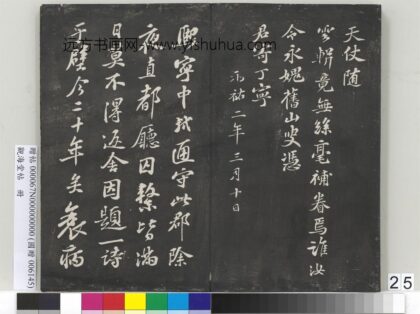 远方书画网 www.yishuhua.com
天仗随
雲帳竟無絲毫補眷焉誰汝
令永愧舊山叟憑
君寄丁寧
元祐二年三月十日
熙寧中軾通守此郡除
夜直都廳囚繫皆滿
日莫不得返舍因題一詩
于壁今二十年矣衰病
贈帖 000067N000000000 (國贈 006145)
觀海堂帖 冊
25